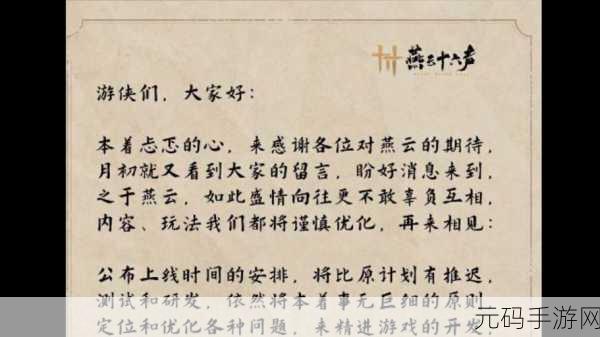 燕云十六声
游侠们，大家好：
本着忐忑的心，来感谢各位对燕云的期待，
月初就又看到大家的留言，盼好消息来到，
之于燕云，如此盛情向往更不敢辜负互相，
内容、玩法我们都将谨慎优化，再来相见：
公布上线时间的安排，将比原计划有推迟，
测试和研发，依然将本着事无巨细的原则，
定位和优化各种问题，来精进游戏的开发，
元码手游网